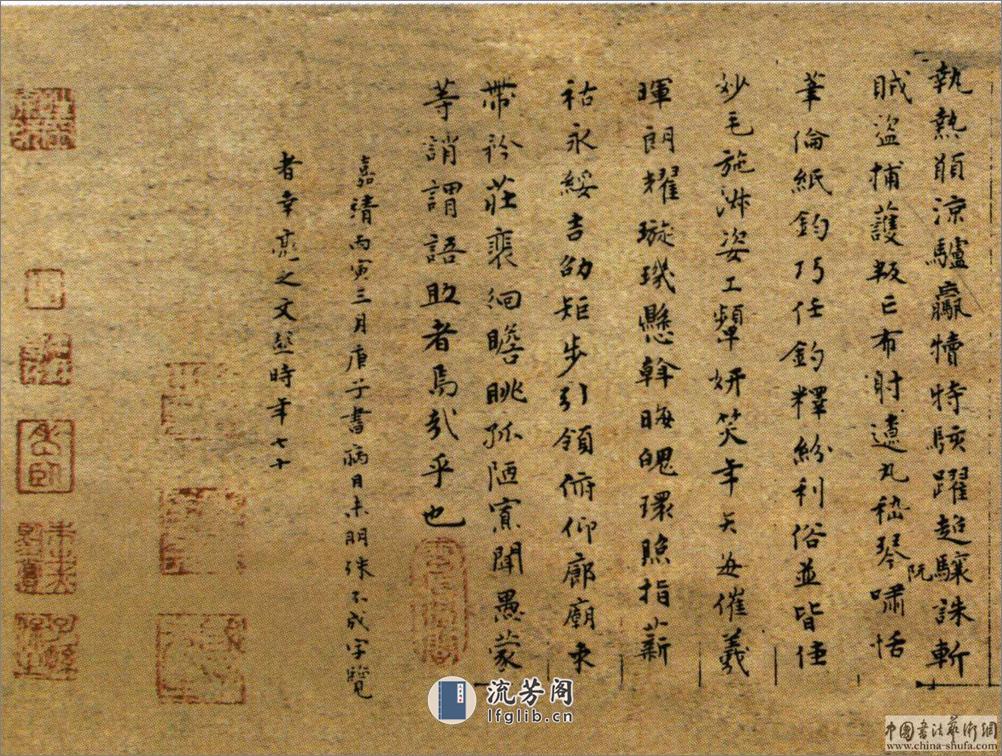 執熱願涼驢驘犢特駭躍超驤誅斬
賊盜捕獲叛亡布射遼丸嵇琴阮嘯恬
筆倫紙鈞巧任釣釋紛利俗並皆佳
妙毛施淑姿工顰妍笑年矢每催羲
暉朗耀璇璣懸斡晦魄環照指薪
祜永綏吉劭矩步引領俯仰廊廟束
帶矜莊裴徊瞻眺孤陋寡聞愚蒙
等誚謂語助者焉哉乎也
嘉靖丙寅三月庚子書病目未明殊不成字覽
者幸亮之文時年七十
流芳阁
lfglib.cn
中国书法艺术网
www.china-shufa.com